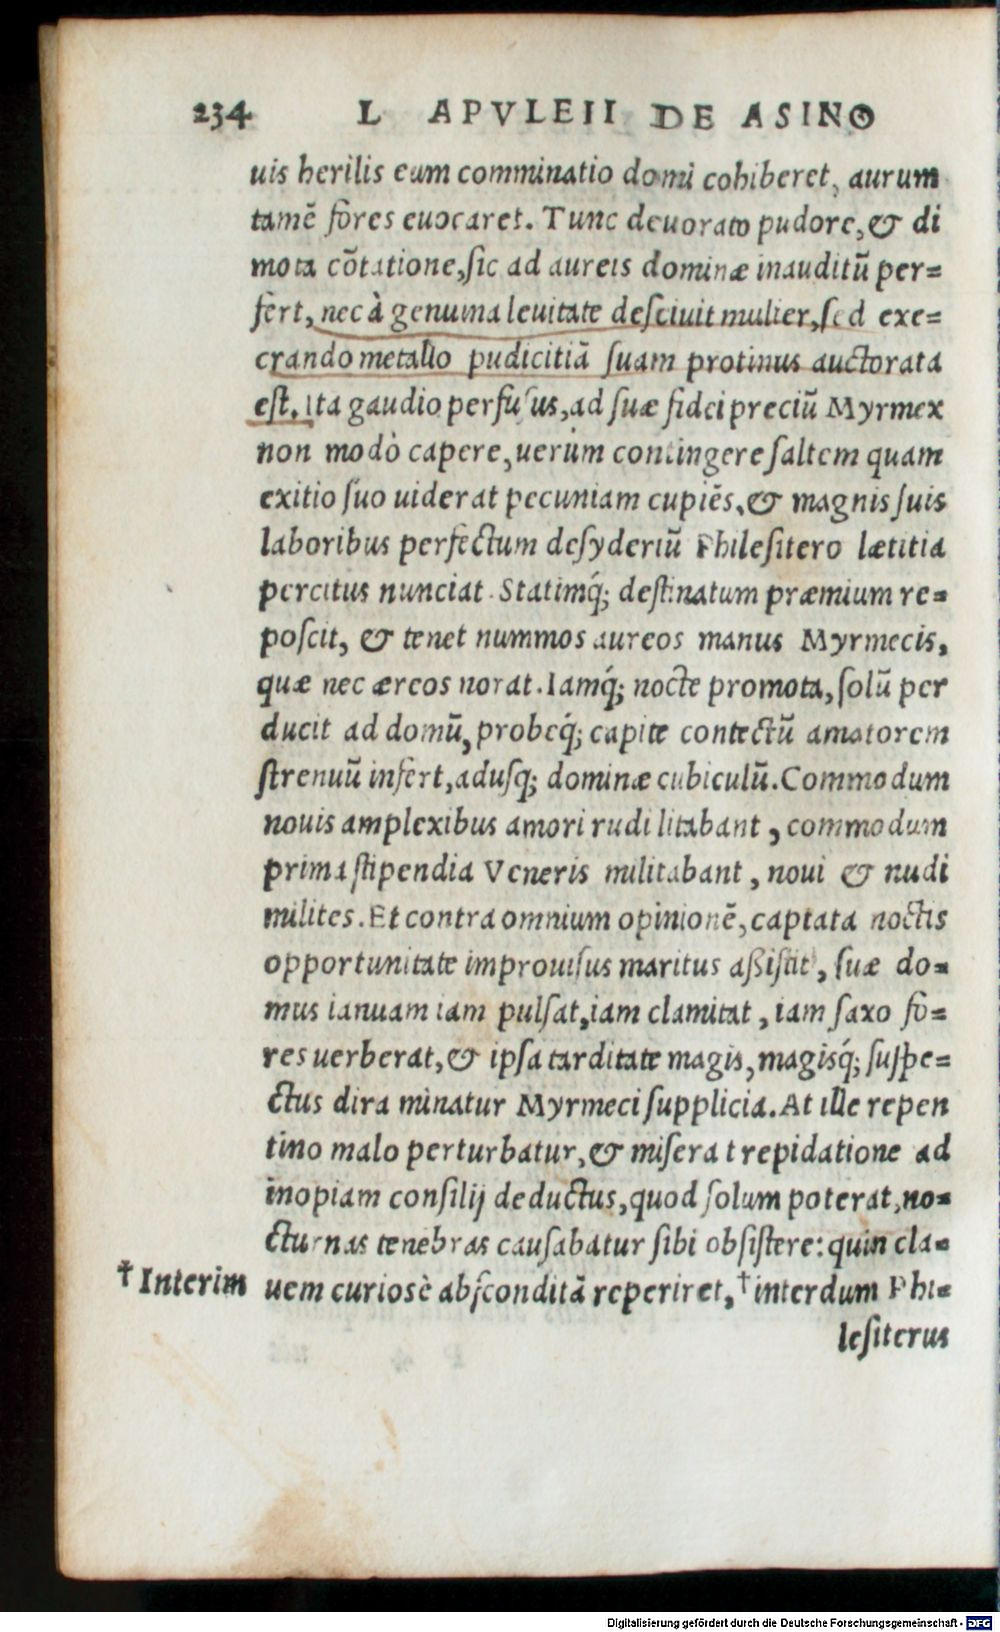 234 L APVLEII DE ASINO
uis herilis eum comminatio domi cohiberet, aurum
tamẽ fores euocaret. Tunc deuorato pudore, & di
mota cõtatione, sic ad aureis dominæ inauditũ per=
fert, nec à genuina leuitate desciuit mulier, sed exe=
crando metallo pudicitiã suam protinus auctorata
est. Ita gaudio perfusus, ad suæ fidei preciũ Myrmex
non modò capere, uerùm contingere saltem quam
exitio suo uiderat pecuniam cupiẽs, & magnis suis
laboribus perfectum desyderiũ Philesitero lætitia
percitus nunciat. Statimq́; destinatum præmium re=
poscit, & tenet nummos aureos manus Myrmecis,
quæ nec æreos norat. Iamq́; nocte promota, solũ per
ducit ad domũ, probeq́; capite contectũ amatorem
strenuũ infert, adusq; dominæ cubiculũ. Commodum
nouis amplexibus amori rudi litabant, commodum
prima stipendia Veneris militabant, noui & nudi
milites. Et contra omnium opinionẽ, captata noctis
opportunitate improuisus maritus aßistit, suæ do=
mus ianuam iam pulsat, iam clamitat, iam saxo fo=
res uerberat, & ipsa tarditate magis, magisq́; suspe=
ctus dira minatur Myrmeci supplicia. At ille repen
tino malo perturbatur, & misera trepidatione ad
inopiam consilij deductus, quod solum poterat, no=
cturnas tenebras causabatur sibi obsistere: quin cla=
†Interim uem curiosè absconditã reperiret, †interdum Phi=
lesiterus
Digitalisierung gefördert durch die Deutsche Forschungsgemeinschaft - DFG